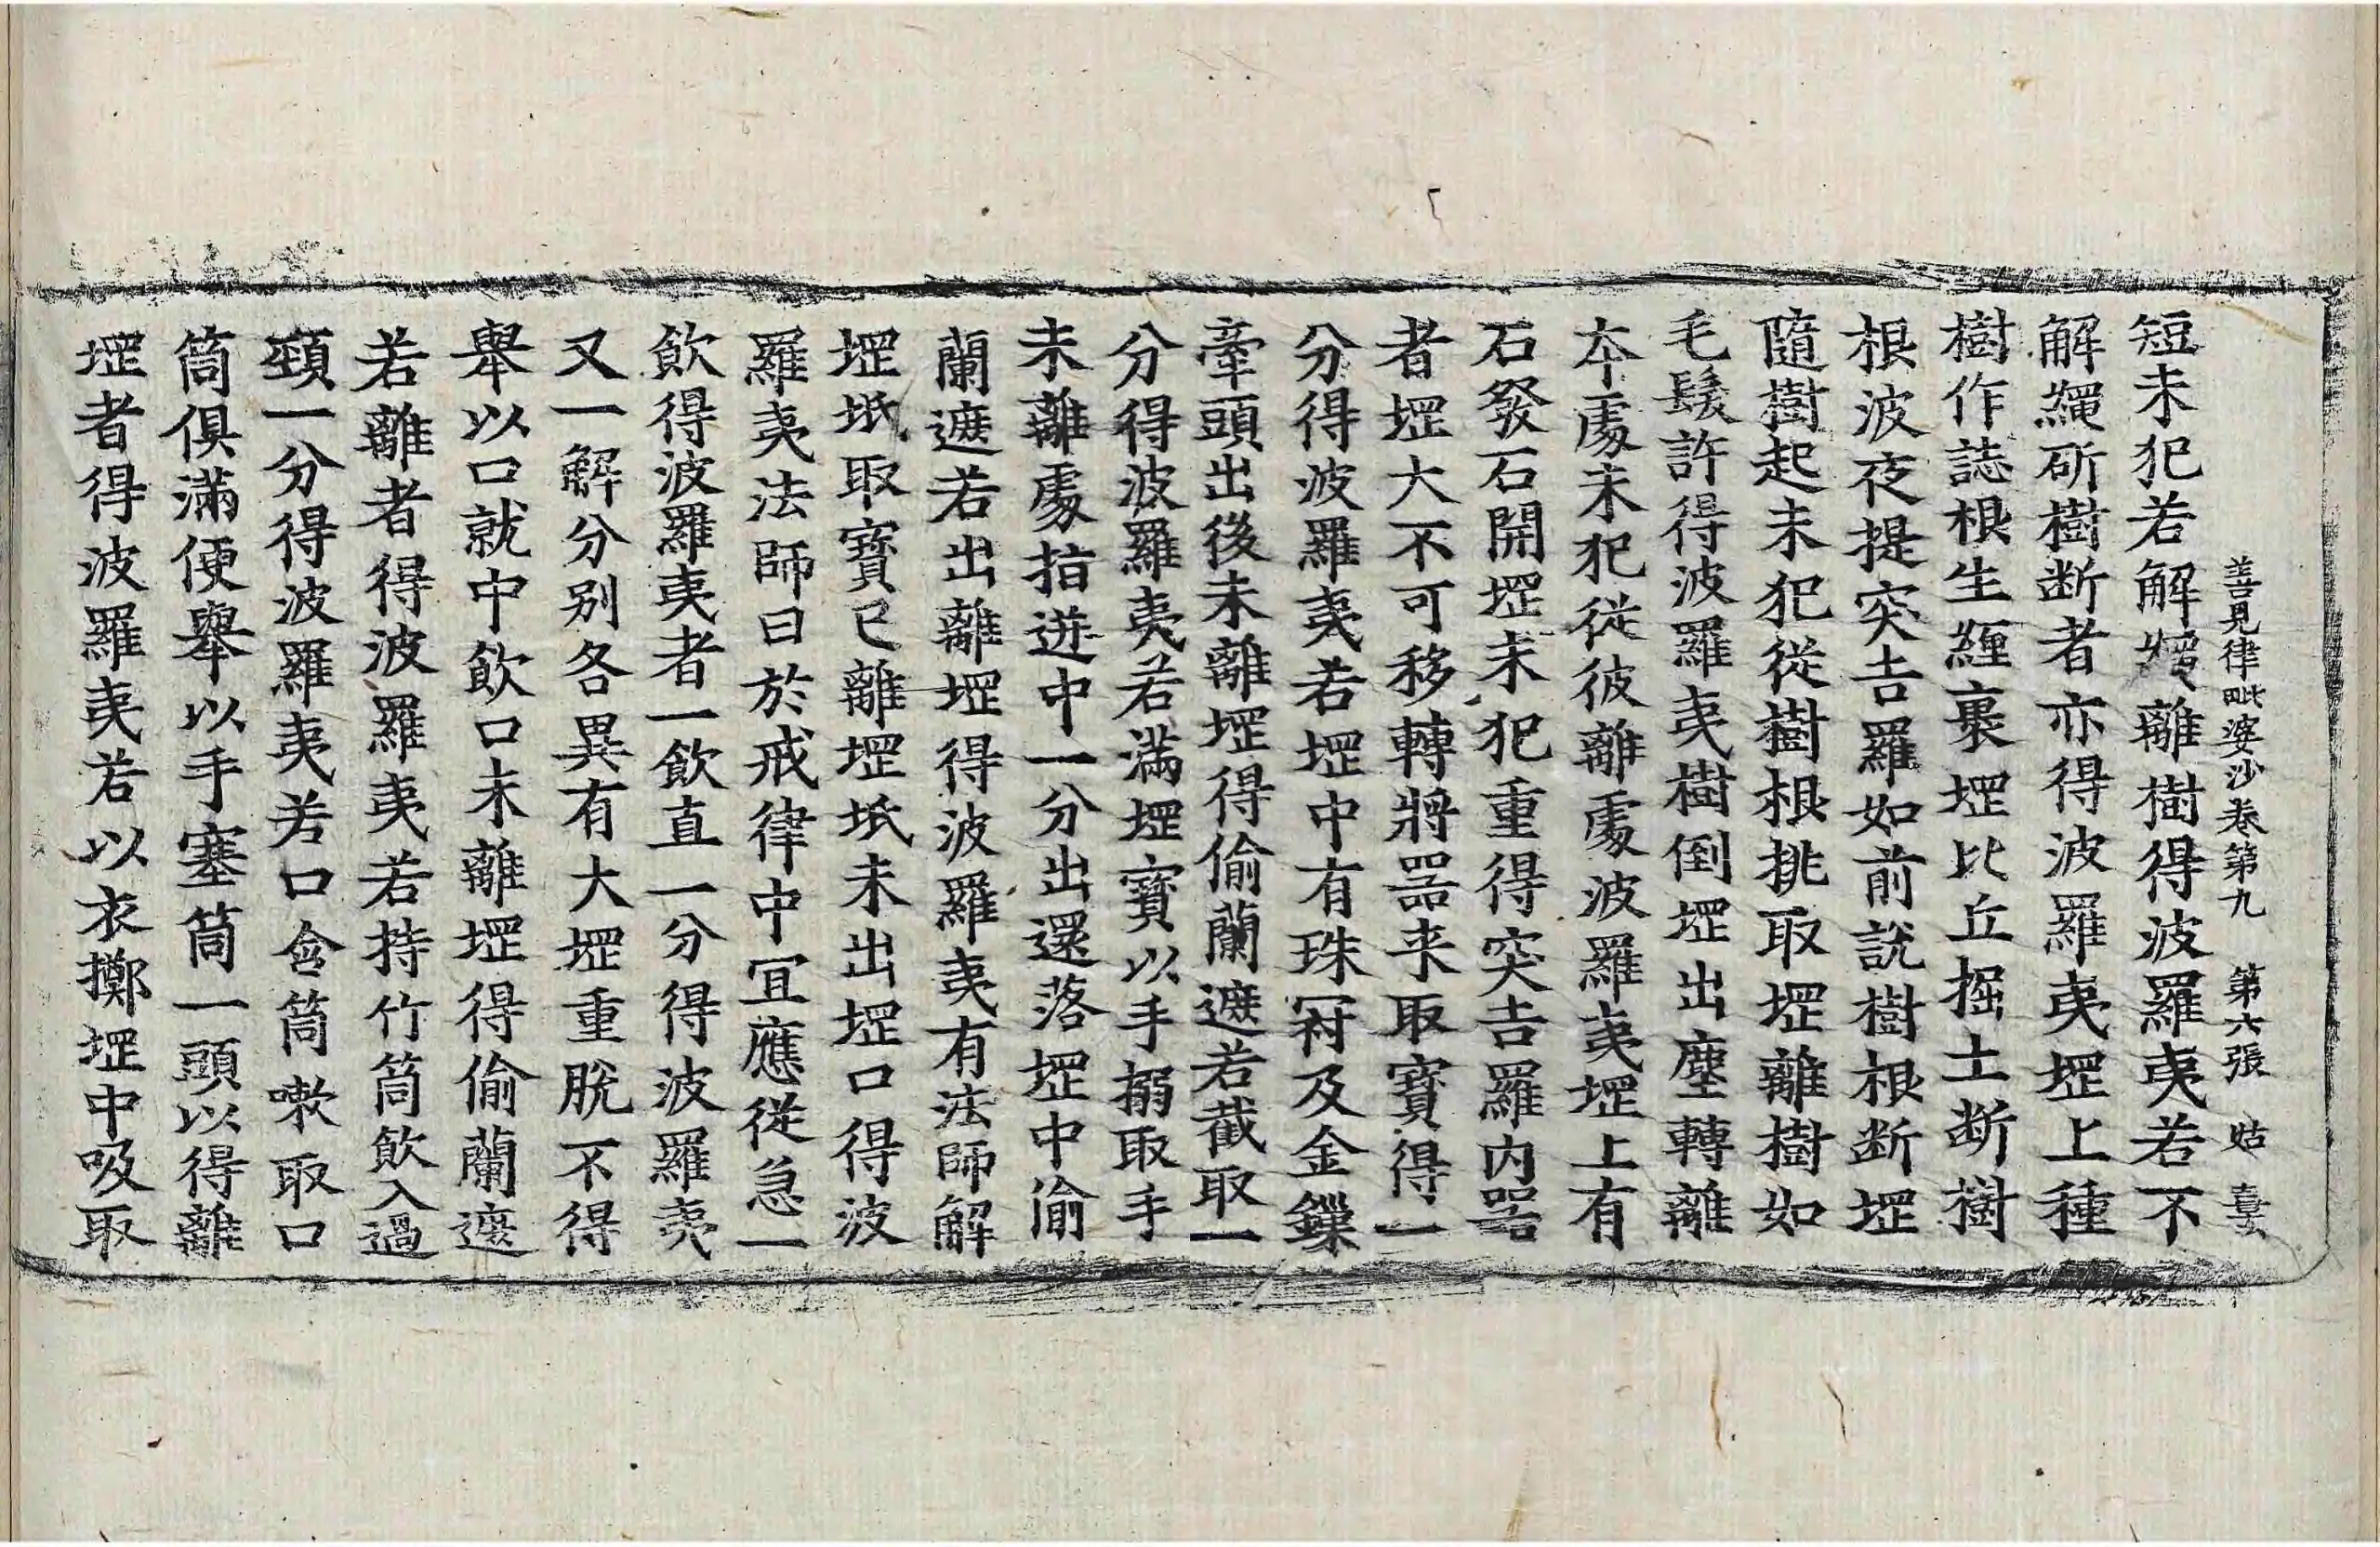 善見律毗婆沙卷第九　第六張　姑
短未犯若解離樹得波羅夷若不
解繩斫樹断者亦得波羅夷堽上種
樹作誌根生纒裹堽比丘掘土断樹
根波夜提突吉羅如前說樹根断堽
隨樹起未犯從樹根挑取堽離樹如
毛髮許得波羅夷樹倒堽出塵轉離
本處未犯從彼離處波羅夷堽上有
石發石開堽未犯重得突吉羅内器
者堽大不可移轉將器来取寳得一
分得波羅夷若堽中有珠冠及金鏁
牽頭出後未離堽得偷蘭遮若截取一
分得波羅夷若滿堽寳以手搦取手
未離處指迸中一分出還落堽中偷
蘭遮若出離堽得波羅夷有法師解
堽坻取寳已離堽坻未出堽口得波
羅夷法師曰於戒律中冝應從急一
飲得波羅夷者一飲直一分得波羅夷
又一解分別各異有大堽重脫不得
舉以口就中飲口未離堽得偷蘭遮
若離者得波羅夷若持竹筒飲入過
頸一分得波羅夷若口含筒嗽取口
筒俱滿便舉以手塞筒一頭以得離
堽者得波羅夷若以衣擲堽中吸取